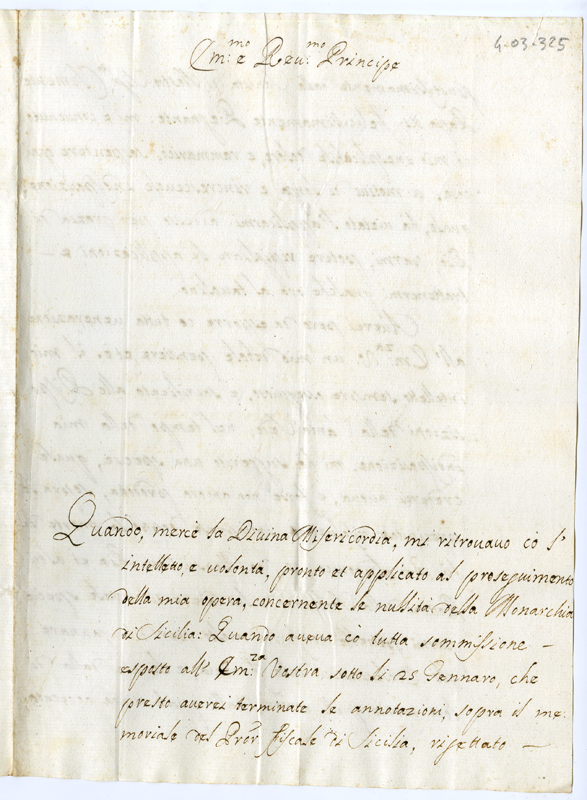 4-03-325
Em:mo e Reu:mo Principe
Quando, mercè la Divina Misericordia, mi ritrouauo cõ l'
intelletto, e volontà, pronto et applicato al proseguimento
della mia opera, concernente le nullità della Monarchia
di Sicilia: Quando aueua cõ tutta sommissione –
esposto all' Em:za Vostra sotto li 25 Gennaro, che
presto auerei terminate le annotazioni, sopra il me:
moriale del Pror fiscale di Sicilia, rigettato –